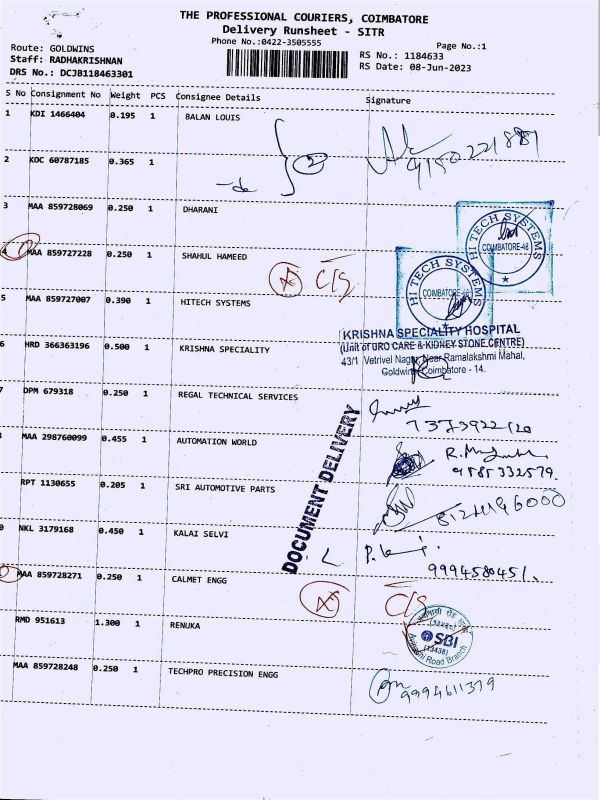 THE PROFESSIONAL COURIERS, COIMBATORE
Delivery Runsheet - SITR
Phone No.:0422-3505555
Page No.:1
Route: GOLDWINS
Staff: RADHAKRISHNAN
DRS No.: DCJB118463301
RS No.: 1184633
RS Date: 08-Jun-2023
S No Consignment No Weight PCS Consignee Details Signature
1 KDI 1466404 0.195 1 BALAN LOUIS
2 KOC 60787185 0.365 1
2
3 MAA 859728069 0.250 1 DHARANI
HI TECH SYSTEMS
COIMBATORE-48
4 MAA 859727228 0.250 1 SHAHUL HAMEED
HI TECH SYSTEMS
COIMBATORE
5 MAA 859727007 0.390 1 HITECH SYSTEMS
KRISHNA SPECIALITY HOSPITAL
(Unit of URO CARE & KIDNEY STONE CENTRE)
43/1 Vetrivel Nagar, Near Ramalakshmi Mahal,
Goldwins, Coimbatore - 14.
6 HRD 366363196 0.500 1 KRISHNA SPECIALITY
7 DPM 679318 0.250 1 REGAL TECHNICAL SERVICES
MAA 298760099 0.455 1 AUTOMATION WORLD
9585332579.
DOCUMENT DELIVERY
RPT 1130655 0.205 1 SRI AUTOMOTIVE PARTS
NKL 3179168 0.450 1 KALAI SELVI
9994580451.
MAA 859728271 0.250 1 CALMET ENGG
RMD 951613 1.300 1 RENUKA
SBI
(13438)
Avinashi Road Branch
MAA 859728248 0.250 1 TECHPRO PRECISION ENGG
9994611379